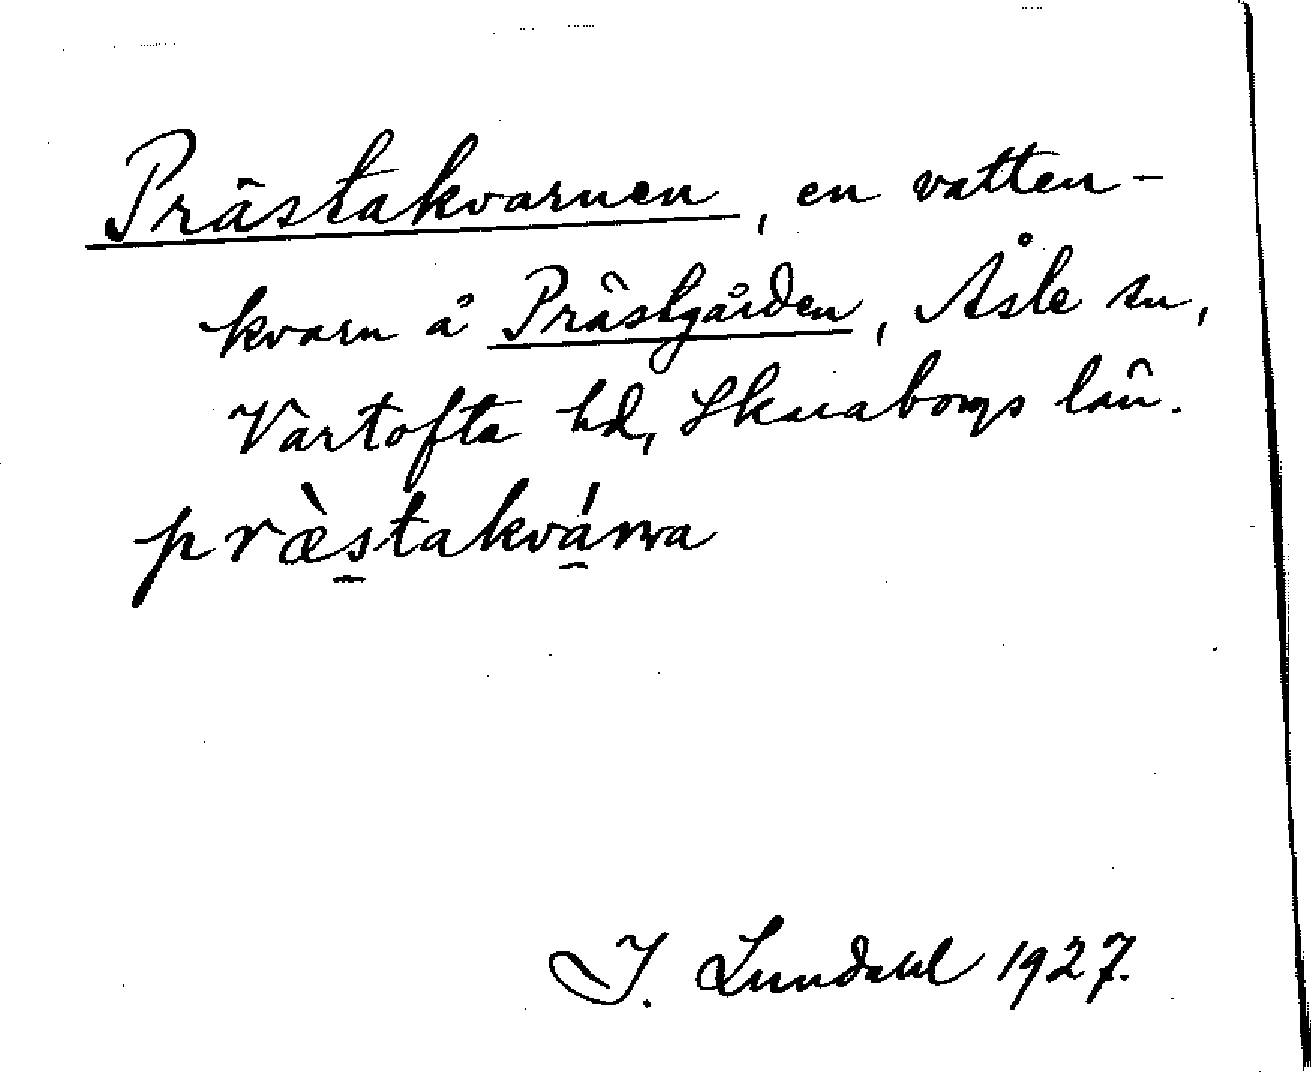 Prästakvarnen, en vatten-
kvarn å Prästgården, Åsle sn,
Vartofta hd, Skaraborgs län.
præ̀stakvárna
I. Lundahl 1927.